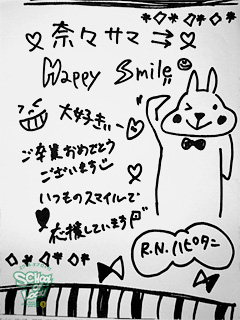 ♡奈々サマ⇒♡
Happy Smile
大好きぃー♡
ご卒業おめでとう
ございます
いつものスマイルで
応援しています
R.N.ハピタン
SCHOOL
OF LOCK!